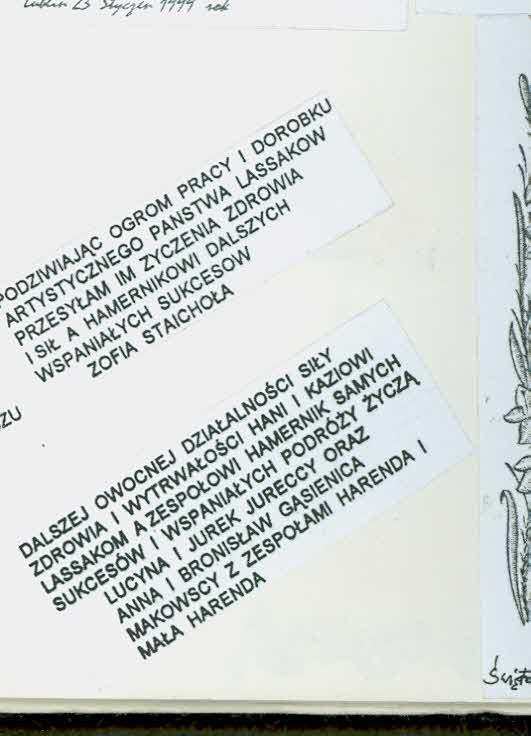 Lublin 23 Styczeń 1999 rok
PODZIWIAJĄC OGROM PRACY I DOROBKU
ARTYSTYCZNEGO PAŃSTWA LASSAKOW
PRZESYŁAM IM ZYCZENIA ZDROWIA
I SIŁ A HAMERNIKOWI DALSZYCH
WSPANIAŁYCH SUKCESOW
ZOFIA STAICHOŁA
ZU
DALSZEJ OWOCNEJ DZIAŁALNOŚCI SIŁY
ZDROWIA I WYTRWAŁOŚCI HANI I KAZIOWI
LASSAKOM A ZESPOŁOWI HAMERNIK SAMYCH
SUKCESÓW I WSPANIAŁYCH PODRÓŻY ŻYCZĄ
LUCYNA I JUREK JURECCY ORAZ
ANNA I BRONISŁAW GĄSIENICA
MAKOWSCY Z ZESPOŁAMI HARENDA I
MAŁA HARENDA